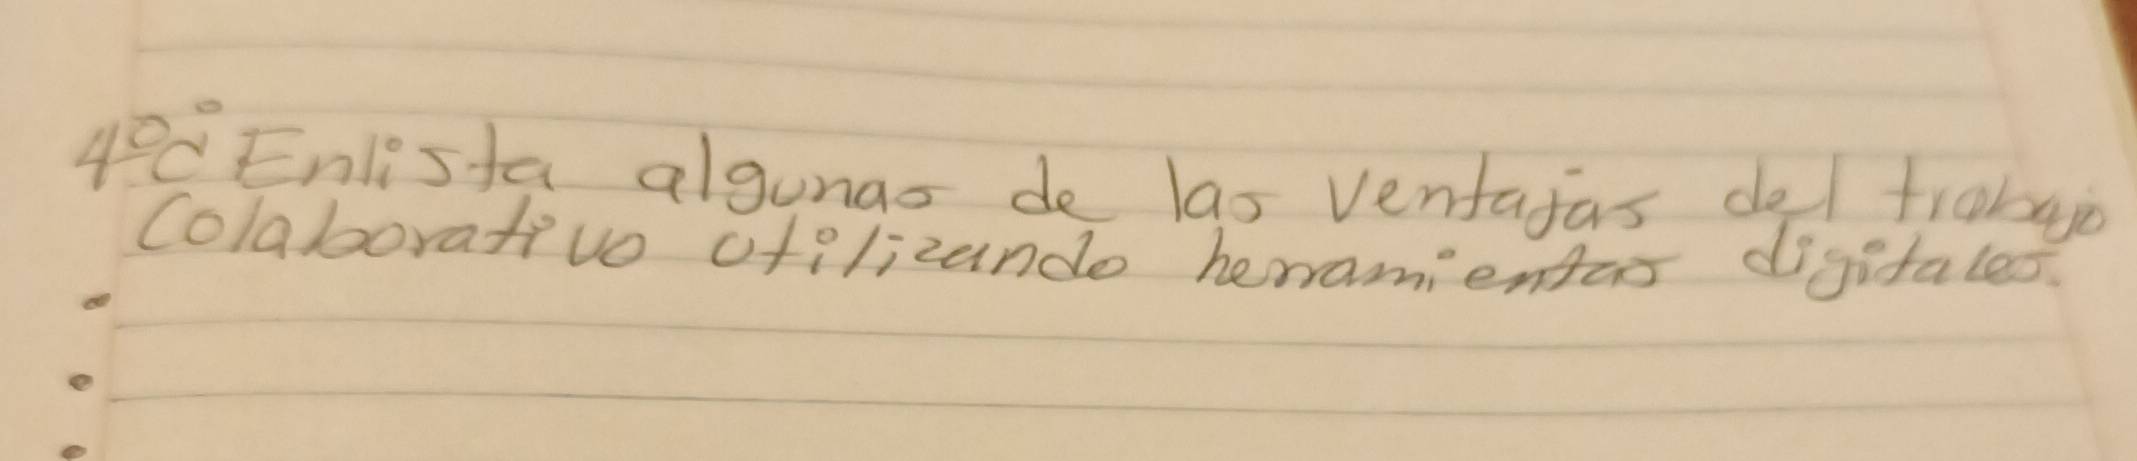 4º¿Enlista algunas de las ventajas del trabajo
Colaborativo utilizando herramientas digitales.
•
•
•